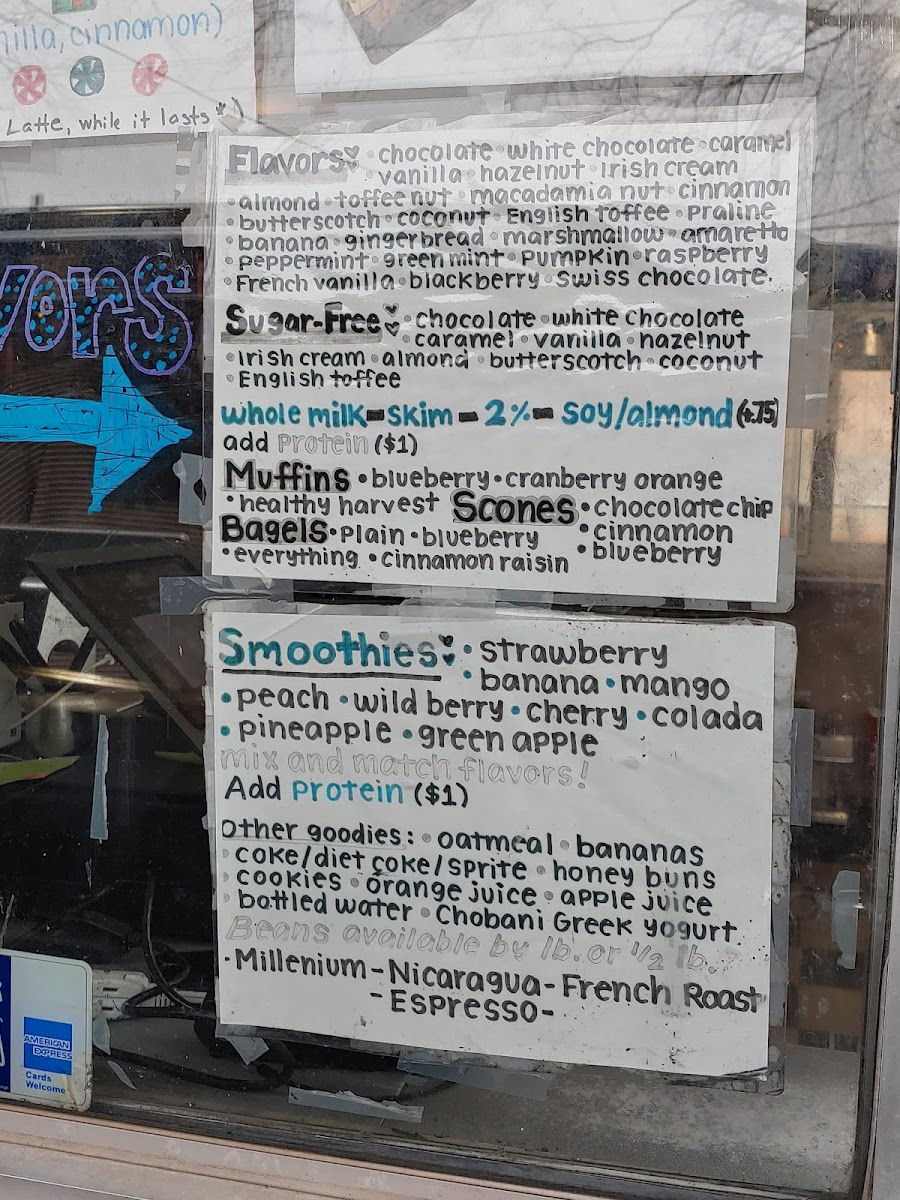 nilla, cinnamon)
Latte, while it lasts*)
vors
Flavors • chocolate • white chocolate • caramel
• vanilla • hazelnut • Irish cream
• almond • toffee nut • macadamia nut • cinnamon
• butterscotch • coconut • English toffee • Praline
• banana • gingerbread • marshmallow • amaretto
• peppermint • green mint • Pumpkin • raspberry
• French vanilla • blackberry • Swiss chocolate.
Sugar-Free • chocolate • white chocolate
caramel • vanilla • hazelnut
• Irish cream • almond • butterscotch • coconut
• English toffee
whole milk - skim - 2% - soy/almond (+.75)
add Protein ($1)
Muffins • blueberry • cranberry orange
• healthy harvest Scones • chocolate chip
Bagels • Plain • blueberry • cinnamon
• everything • cinnamon raisin • blueberry
Smoothies • strawberry
• banana • mango
• peach • wild berry • cherry • colada
• pineapple • green apple
mix and match flavors!
Add Protein ($1)
Other goodies: • oatmeal • bananas
• coke/diet coke/sprite • honey buns
• cookies • orange juice • apple juice
• bottled water • Chobani Greek yogurt
Beans available by lb. or 1/2 lb.
• Millenium - Nicaragua - French Roast
- Espresso -
AMERICAN
EXPRESS
Cards
Welcome